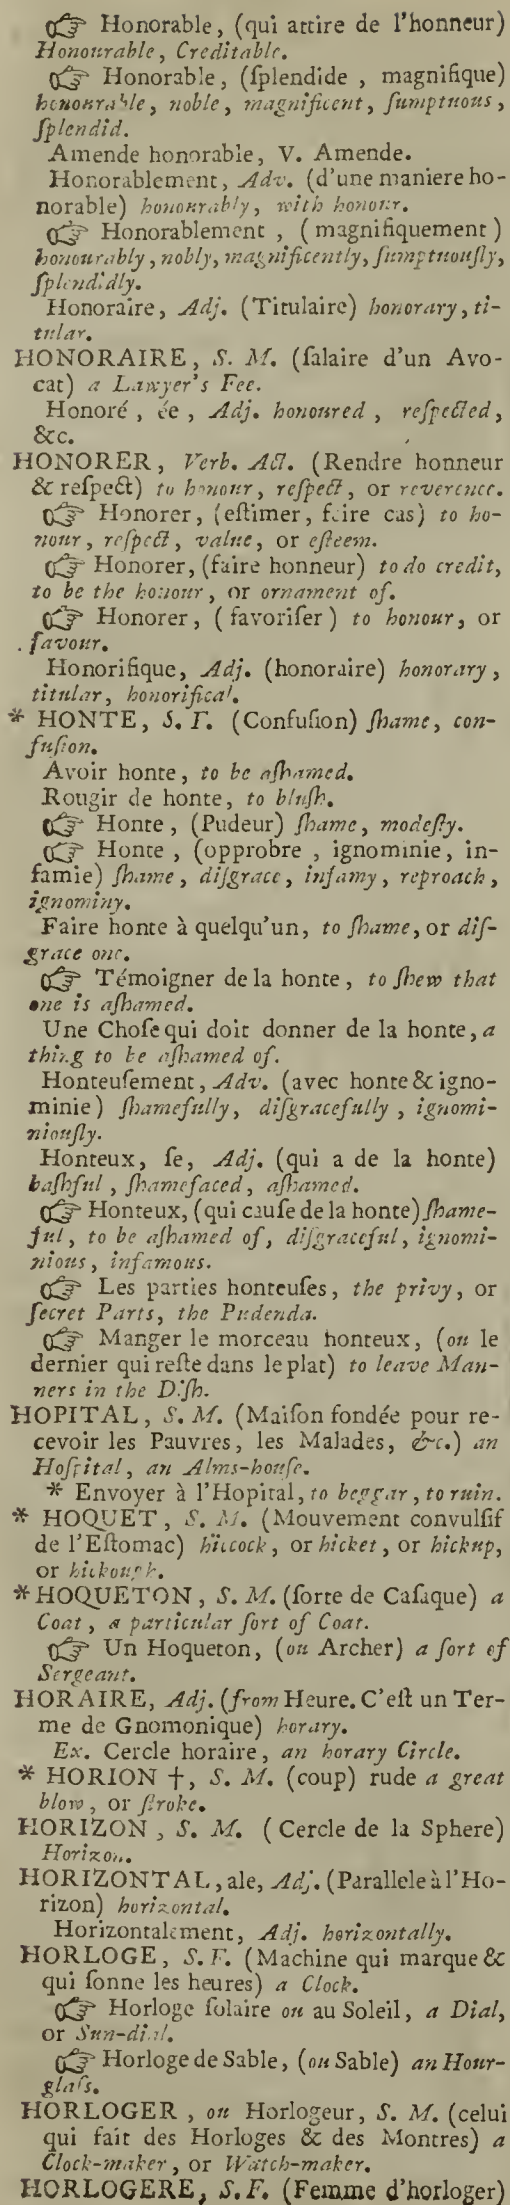 ☞ Honorable, (qui attire de l'honneur)
Honourable, Creditable.
☞ Honorable, (ſplendide, magnifique)
honourable, noble, magnificent, ſumptuous,
ſplendid.
Amende honorable, V. Amende.
Honorablement, Adv. (d'une maniere ho-
norable) honourably, with honour.
☞ Honorablement, (magnifiquement)
honourably, nobly, magnificently, ſumptuouſly,
ſplendidly.
Honoraire, Adj. (Titulaire) honorary, ti-
tular.
HONORAIRE, S. M. (ſalaire d'un Avo-
cat) a Lawyer's Fee.
Honoré, ée, Adj. honoured, reſpected,
&c.
HONORER, Verb. Act. (Rendre honneur
& reſpect) to honour, reſpect, or reverence.
☞ Honorer, (eſtimer, faire cas) to ho-
nour, reſpect, value, or eſteem.
☞ Honorer, (faire honneur) to do credit,
to be the honour, or ornament of.
☞ Honorer, (favoriſer) to honour, or
favour.
Honorifique, Adj. (honoraire) honorary,
titular, honorifical.
* HONTE, S. F. (Confuſion) ſhame, con-
fuſion.
Avoir honte, to be aſhamed.
Rougir de honte, to bluſh.
☞ Honte, (Pudeur) ſhame, modeſty.
☞ Honte, (opprobre, ignominie, in-
famie) ſhame, diſgrace, infamy, reproach,
ignominy.
Faire honte à quelqu'un, to ſhame, or diſ-
grace one.
☞ Témoigner de la honte, to ſhew that
one is aſhamed.
Une Choſe qui doit donner de la honte, a
thing to be aſhamed of.
Honteuſement, Adv. (avec honte & igno-
minie) ſhamefully, diſgracefully, ignomi-
niouſly.
Honteux, ſe, Adj. (qui a de la honte)
baſhful, ſhamefaced, aſhamed.
☞ Honteux, (qui cauſe de la honte) ſhame-
ful, to be aſhamed of, diſgraceful, ignomi-
nious, infamous.
☞ Les parties honteuſes, the privy, or
ſecret Parts, the Pudenda.
☞ Manger le morceau honteux, (ou le
dernier qui reſte dans le plat) to leave Man-
ners in the Diſh.
HOPITAL, S. M. (Maiſon fondée pour re-
cevoir les Pauvres, les Malades, &c.) an
Hoſpital, an Alms-houſe.
* Envoyer à l'Hopital, to beggar, to ruin.
* HOQUET, S. M. (Mouvement convulſif
de l'Eſtomac) hiccock, or hicket, or hickup,
or hickough.
* HOQUETON, S. M. (ſorte de Caſaque) a
Coat, a particular ſort of Coat.
☞ Un Hoqueton, (ou Archer) a ſort of
Sergeant.
HORAIRE, Adj. (from Heure. C'eſt un Ter-
me de Gnomonique) horary.
Ex. Cercle horaire, an horary Circle.
* HORION †, S. M. (coup) rude a great
blow, or ſtroke.
HORIZON, S. M. (Cercle de la Sphere)
Horizon.
HORIZONTAL, ale, Adj. (Parallele à l'Ho-
rizon) horizontal.
Horizontalement, Adj. horizontally.
HORLOGE, S. F. (Machine qui marque &
qui ſonne les heures) a Clock.
☞ Horloge ſolaire ou au Soleil, a Dial,
or Sun-dial.
☞ Horloge de Sable, (ou Sable) an Hour-
glaſs.
HORLOGER, ou Horlogeur, S. M. (celui
qui fait des Horloges & des Montres) a
Clock-maker, or Watch-maker.
HORLOGERE, S. F. (Femme d'horloger)